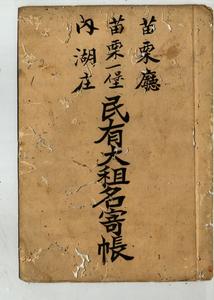 苗栗廳
苗栗一堡
內湖庄
民有大租名寄帳